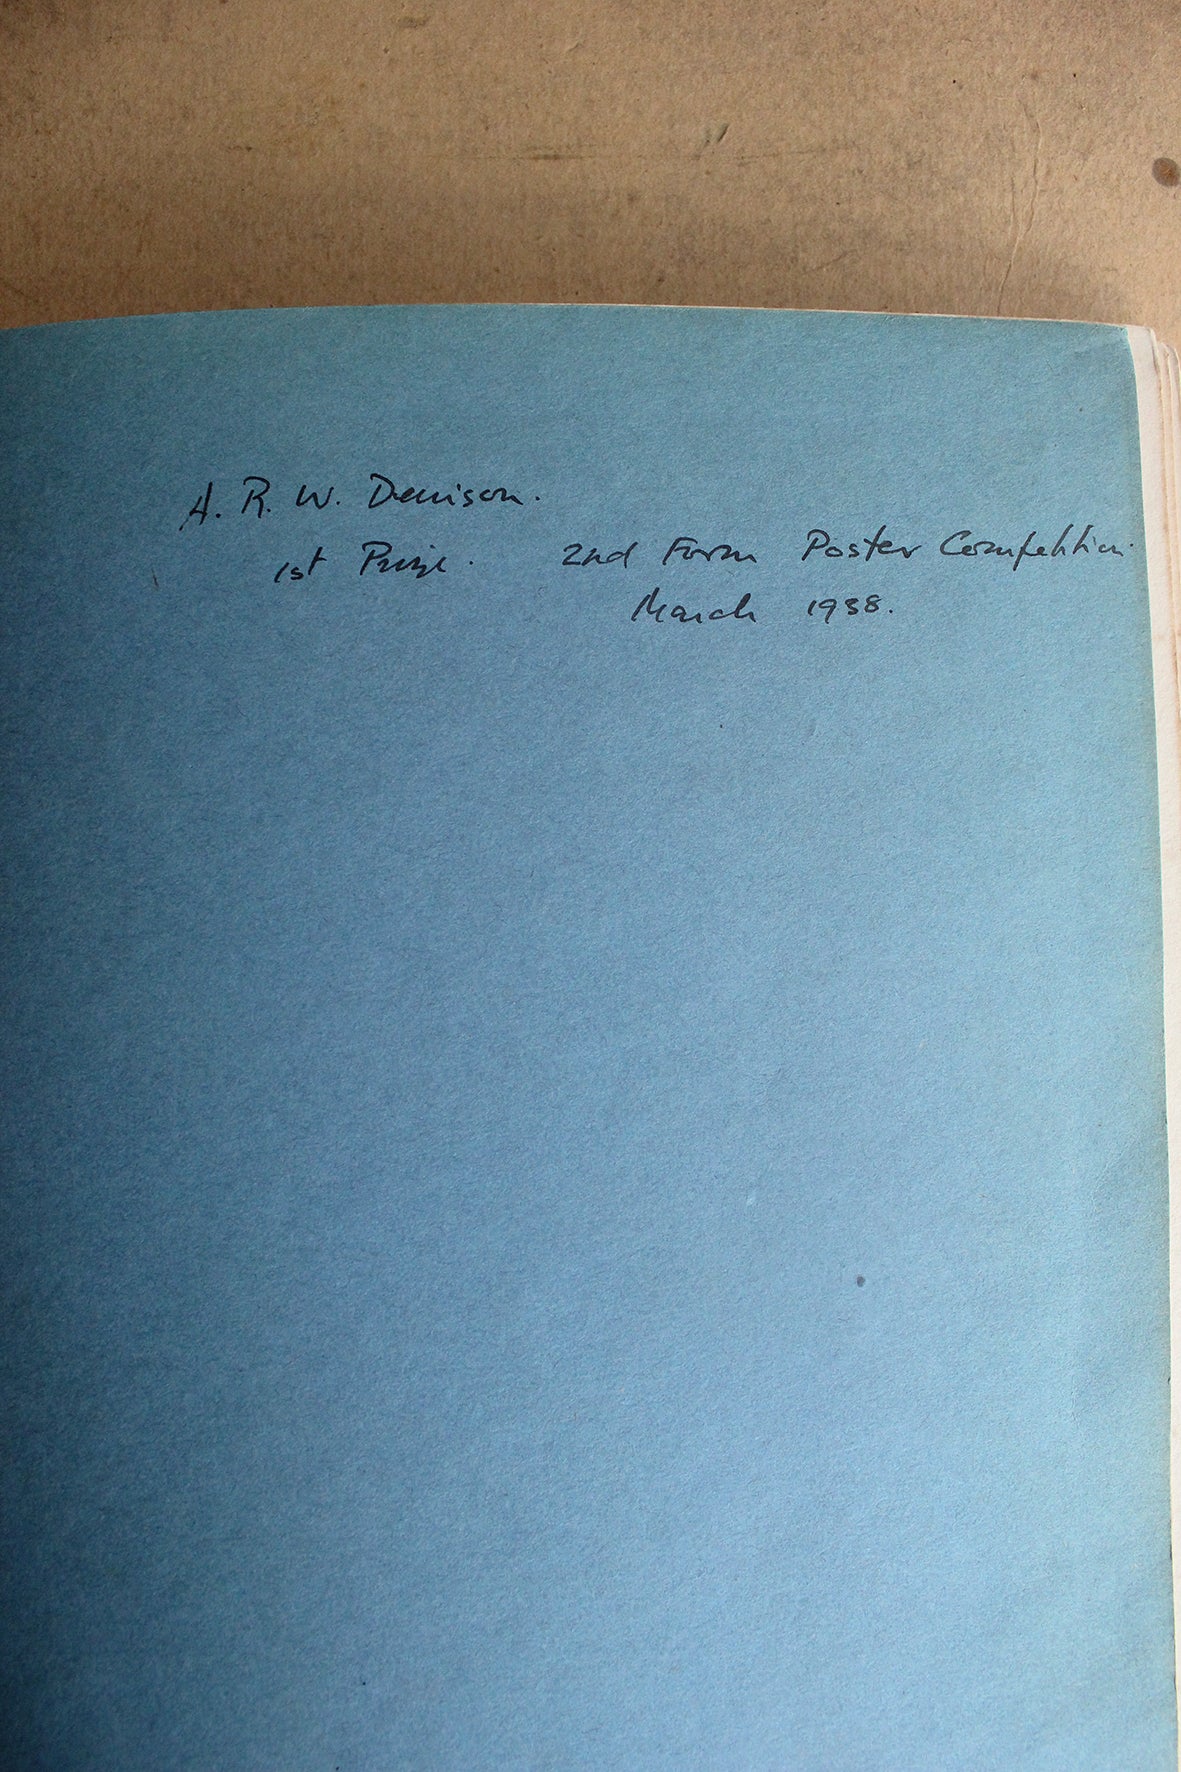 A. R. W. Denison.
1st Prize. 2nd Form Poster Competition.
March 1938.